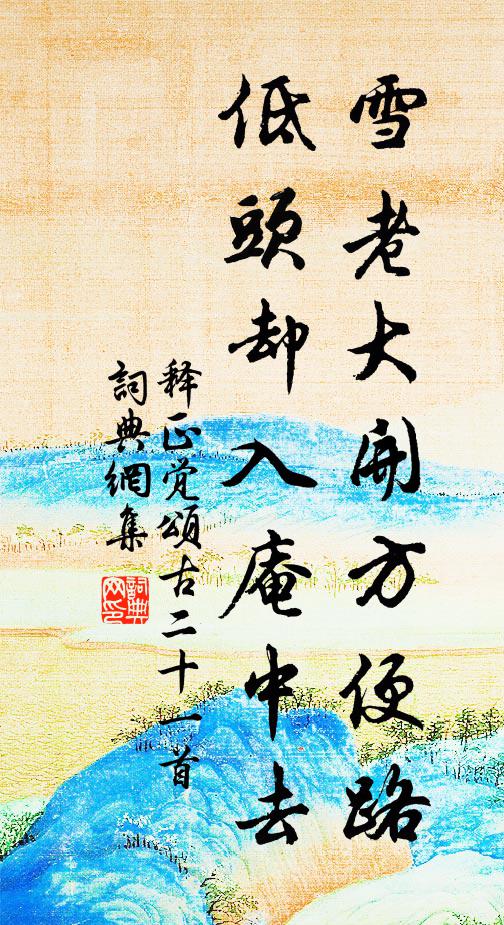 雪老大開方便路
低頭却入庵中去
释正觉頌古二十一首
詞典網集